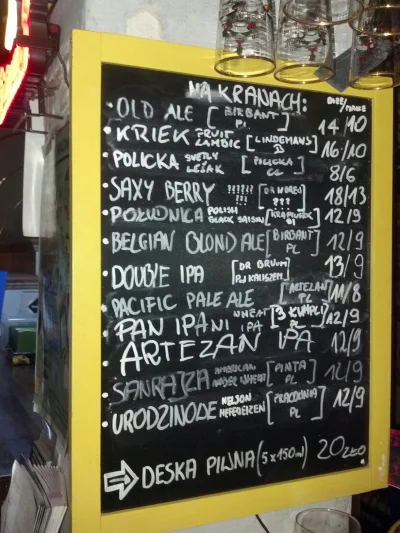 NA KRANACH: DUŻE/MAŁE
OLD ALE [BIRBANT PL] 14/10
KRIEK FRUIT LAMBIC [LINDEMANS B] 16/10
POLICKA SVETLY LEŽAK [POLICKA CZ] 8/6
SAXY BERRY ?????? ??? [DR WOREQ ???] 18/13
POŁUDNICA POLISH BLACK SAISON 12/9
BELGIAN BLOND ALE [BIRBANT PL] 12/9
DOUBLE IPA [DR BREW] 13/9
PACIFIC PALE ALE [ARTEZAN PL] 11/8
PAN IPANI WHEAT IPA [3 KUMPLI PL] 12/9
ARTEZAN IPA 12/9
SANRAJZA AMERICAN AMBER WHEAT [PINTA PL] 12/9
URODZINODE NELSON HEFEWEIZEN [PRACOWNIA PL] 12/9
DESKA PIWNA (5x150ml) 20ZŁ